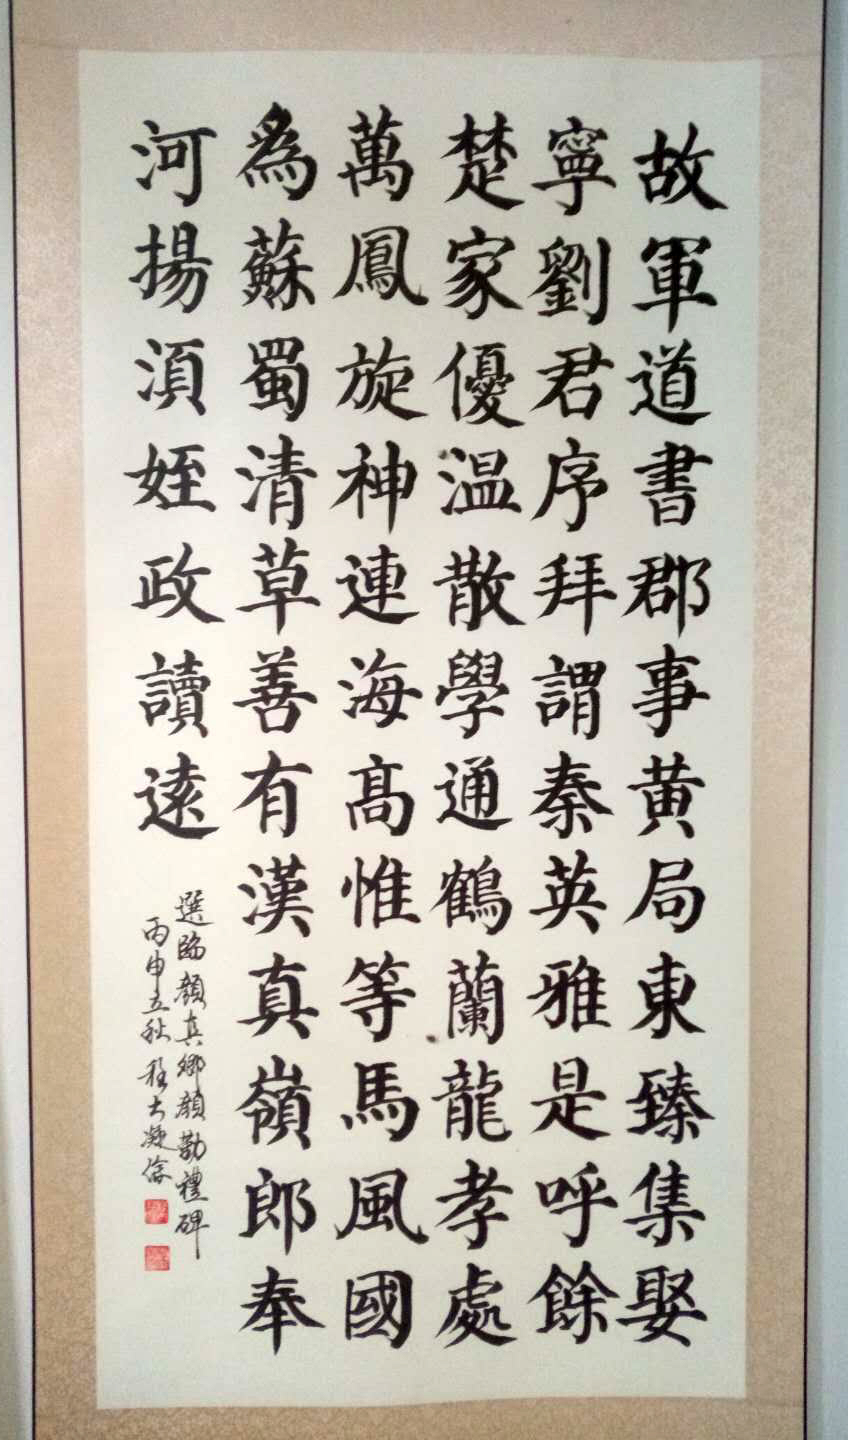 故軍道書郡事黄局東臻集娶
寧劉君序拜謂秦英雅是呼餘
楚家優温散學通鶴蘭龍孝處
萬鳳旋神連海髙惟等馬風國
為蘇蜀清草善有漢真嶺郎奉
河揚湏姪政讀逺
選臨顏真卿顏勤禮碑
丙申立秋程大凝